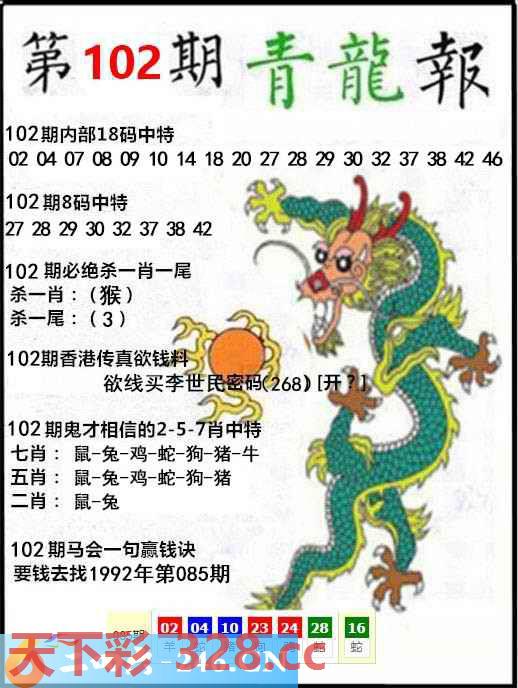 第102期青龍報
102期内部18码中特
02 04 07 08 09 10 14 18 20 27 28 29 30 32 37 38 42 46
102期8码中特
27 28 29 30 32 37 38 42
102期必绝杀一肖一尾
杀一肖：(猴)
杀一尾：(3)
102期香港传真欲钱料
欲线买李世民密码(268)[开?]
102期鬼才相信的2-5-7肖中特
七肖：鼠-兔-鸡-蛇-狗-猪-牛
五肖：鼠-兔-鸡-蛇-狗-猪
二肖：鼠-兔
102期马会一句赢钱诀
要钱去找1992年第085期
02 04 10 23 24 28 16
羊 蛇
天下彩-328.cc